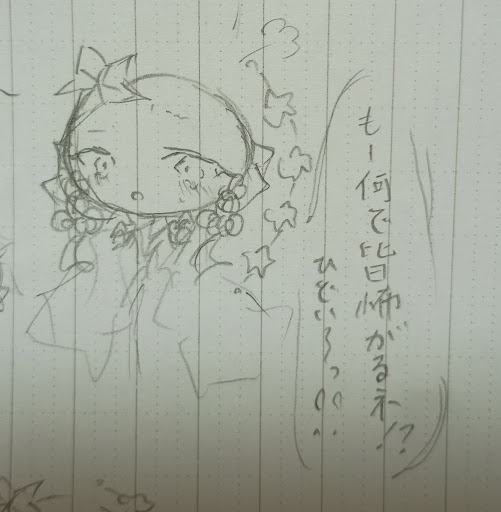 もー何で皆怖がるネ!?
ひどい〜っ!!